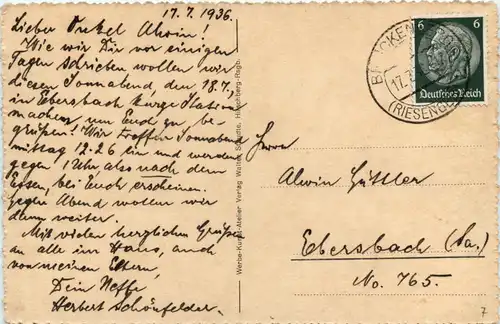 17.7.1936.
Lieber Onkel Alwin!
Wie wir Dir vor einigen
Tagen schrieben wollen wir
diesen Sonnabend, den 18.7.,
in Ebersbach kurze Station
machen, um Euch zu be-
grüßen! Wir treffen Sonnabend
mittag 12.26 ein und werden
gegen 1 Uhr also nach dem
Essen, bei Euch erscheinen.
Gegen Abend wollen wir
dann weiter.
Mit vielen herzlichen Grüßen
an alle im Haus, auch
von meinen Eltern,
Dein Neffe
Herbert Schönfelder.
Werbe-Kunst-Atelier Verlag Walter Hirschberg-Rsgb.
6 6
Deutsches Reich
17.7
(RIESENGE
Herrn
Alwin Güttler
Ebersbach (Sa.)
No. 765.
7